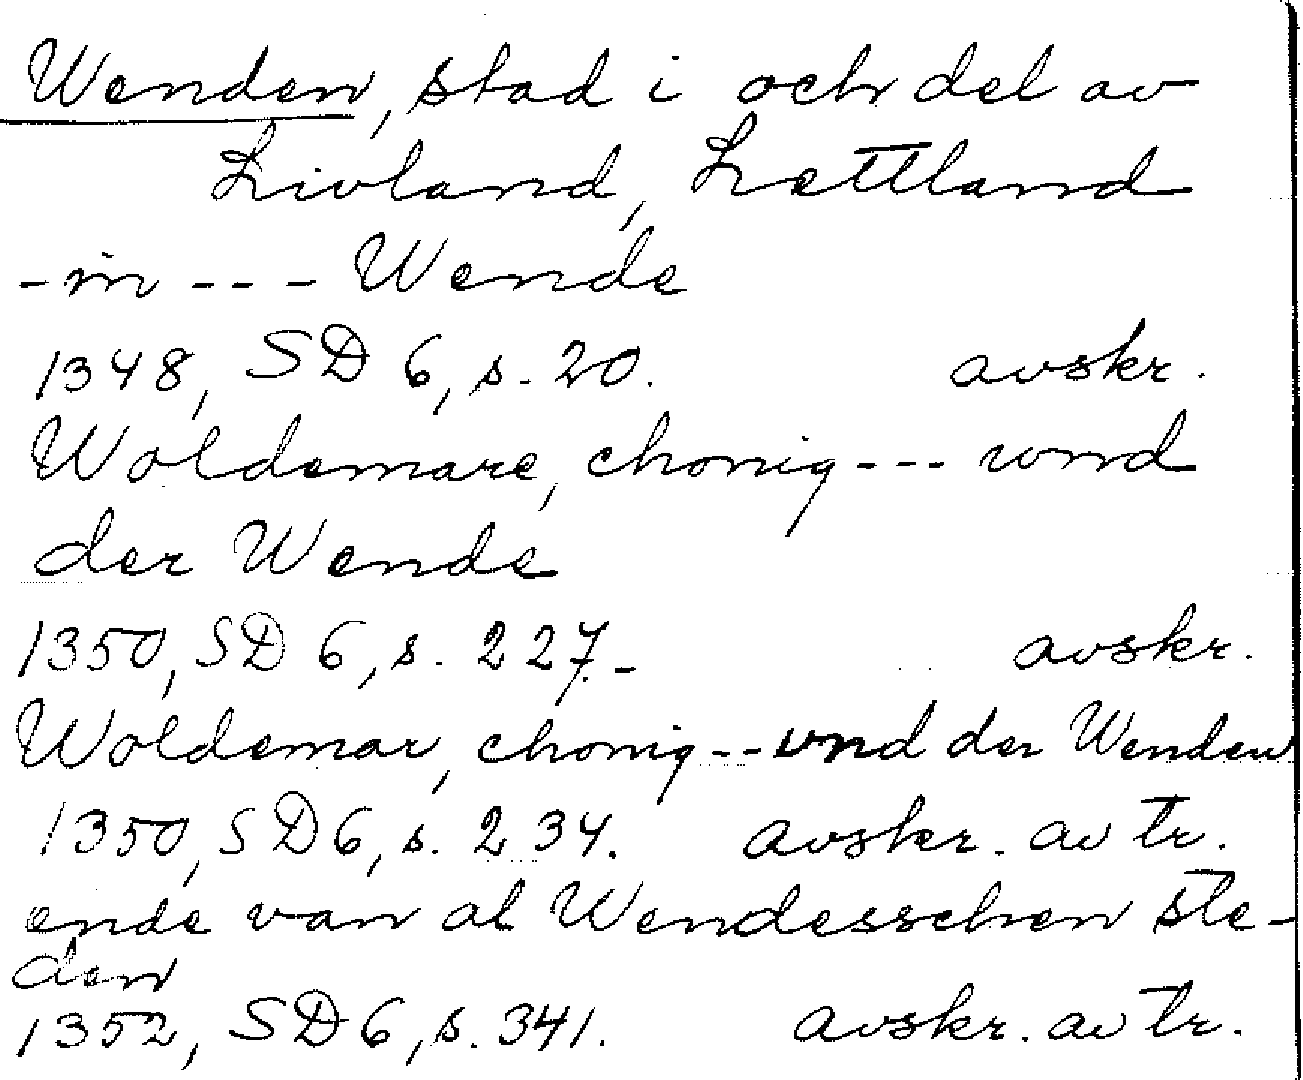 Wenden, stad i och del av
Livland, Lettland
- in - - - Wende
1348, SD 6, s. 20. avskr.
Woldemare, chonig - - - unnd
der Wende
1350, SD 6, s. 227.- avskr.
Woldemar, chonig - - vnd der Wenden
1350, SD 6, s. 234. avskr. av tr.
ende van al Wendesschen ste-
den
1352, SD 6, s. 341. avskr. av tr.